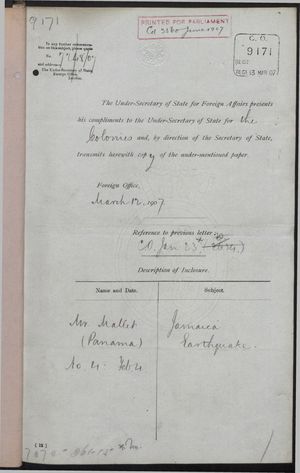 9171
PRINTED FOR PARLIAMENT
Cd 3560 June 1907
C. O.
9171
REGD 13 MAR 07
In any further communication
on this subject, please quote
No. 7748/07
and address—
The Under-Secretary of State,
Foreign Office,
London.
The Under-Secretary of State for Foreign Affairs presents
his compliments to the Under-Secretary of State for the
Colonies and, by direction of the Secretary of State,
transmits herewith copy of the under-mentioned paper.
Foreign Office,
March 12, 1907
Reference to previous letter:
C.O. Jan 23
Description of Inclosure.
Name and Date.
Subject.
Mr. Mallet
(Panama)
No. 4: Feb 4
Jamaica
Earthquake.